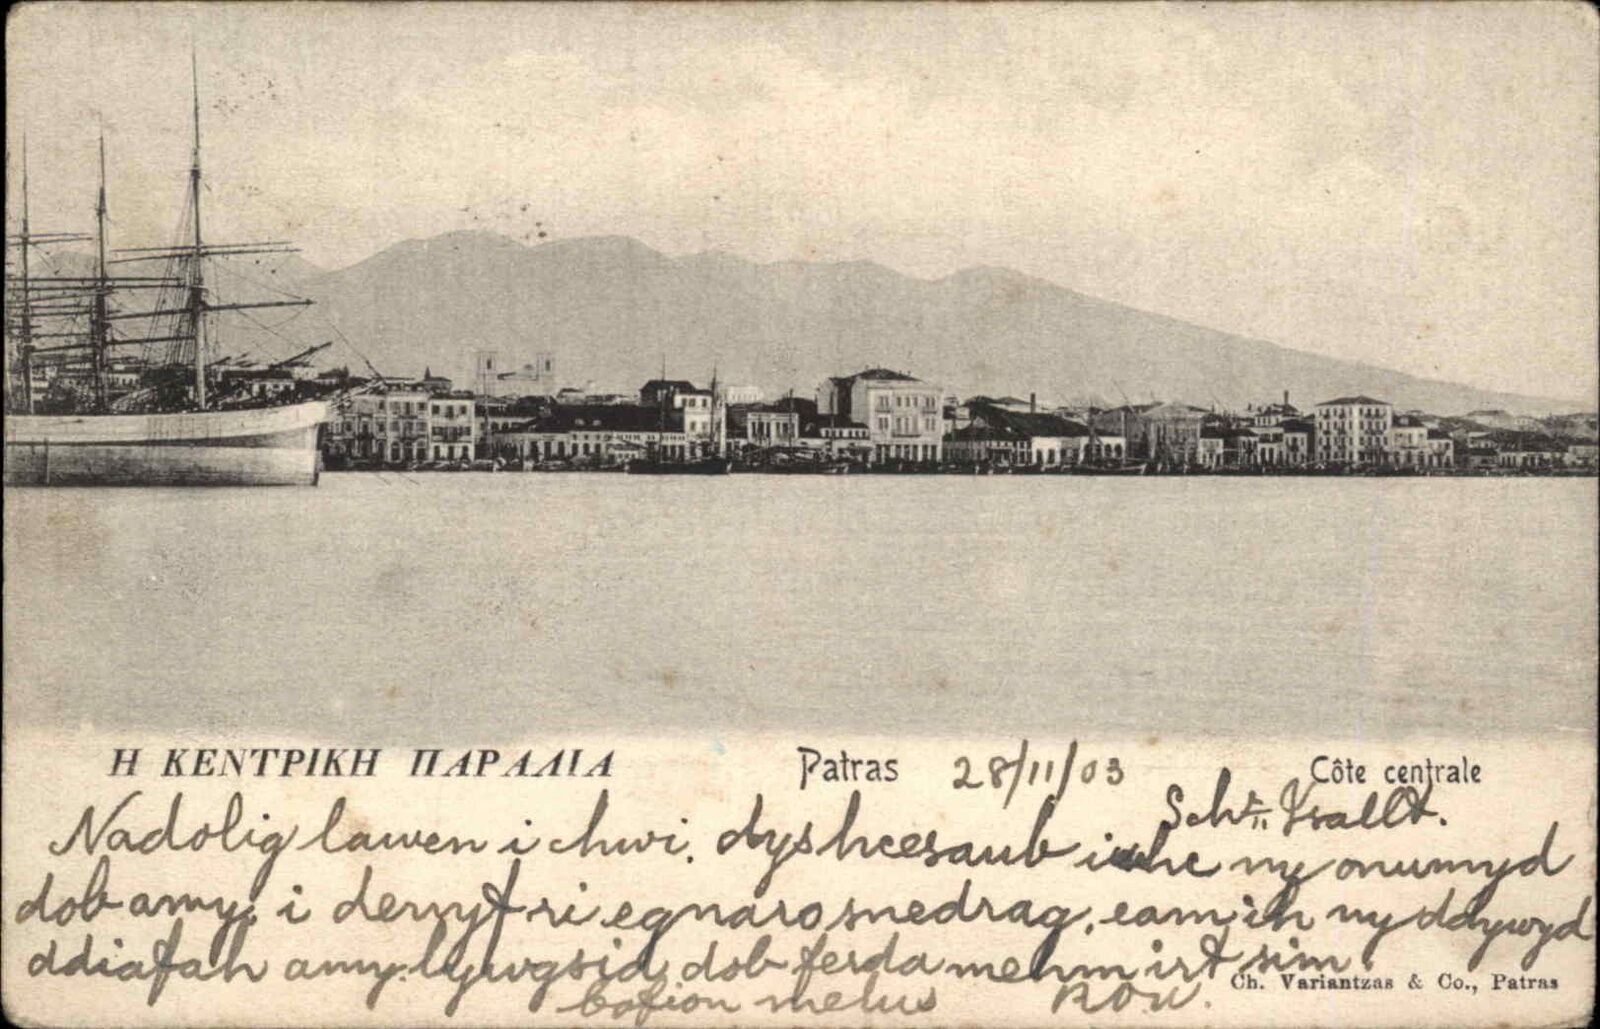 Η ΚΕΝΤΡΙΚΗ ΠΑΡΑΛΙΑ Patras 28/11/03 Côte centrale
Nadolig lawen i chwi. dysheesaub iwhc ny onumyd
dob amy, i dernyf ri egnaro snedrag, eam ih ny ddywyd
ddiafah amy. lywgsid, dob ferda mehm irt sim.
Ch. Variantzas & Co., Patras